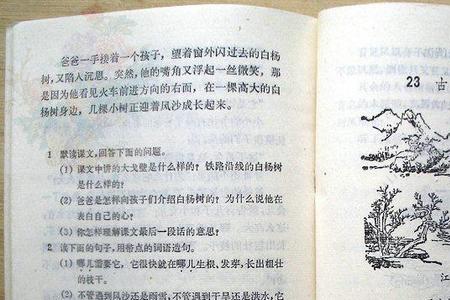 爸爸一手搂着一个孩子，望着窗外闪过去的白杨
树，又陷入沉思。突然，他的嘴角又浮起一丝微笑，那
是因为他看见火车前进方向的右面，在一棵高大的白
杨树身边，几棵小树正迎着风沙成长起来。
1 默读课文，回答下面的问题。
(1) 课文中讲的大戈壁是什么样的？铁路沿线的白杨树
是什么样的？
(2) 爸爸是怎样向孩子们介绍白杨树的？为什么说他在
表白自己的心？
(3) 你怎样理解课文最后一段话的意思？
2 读下面的句子，用带点的词语造句。
(1) 哪儿需要它，它很快就在哪儿生根、发芽，长出粗壮
的枝干。
(2) 不管遇到风沙还是雨雪，不管遇到干旱还是洪水，它
23 古
江